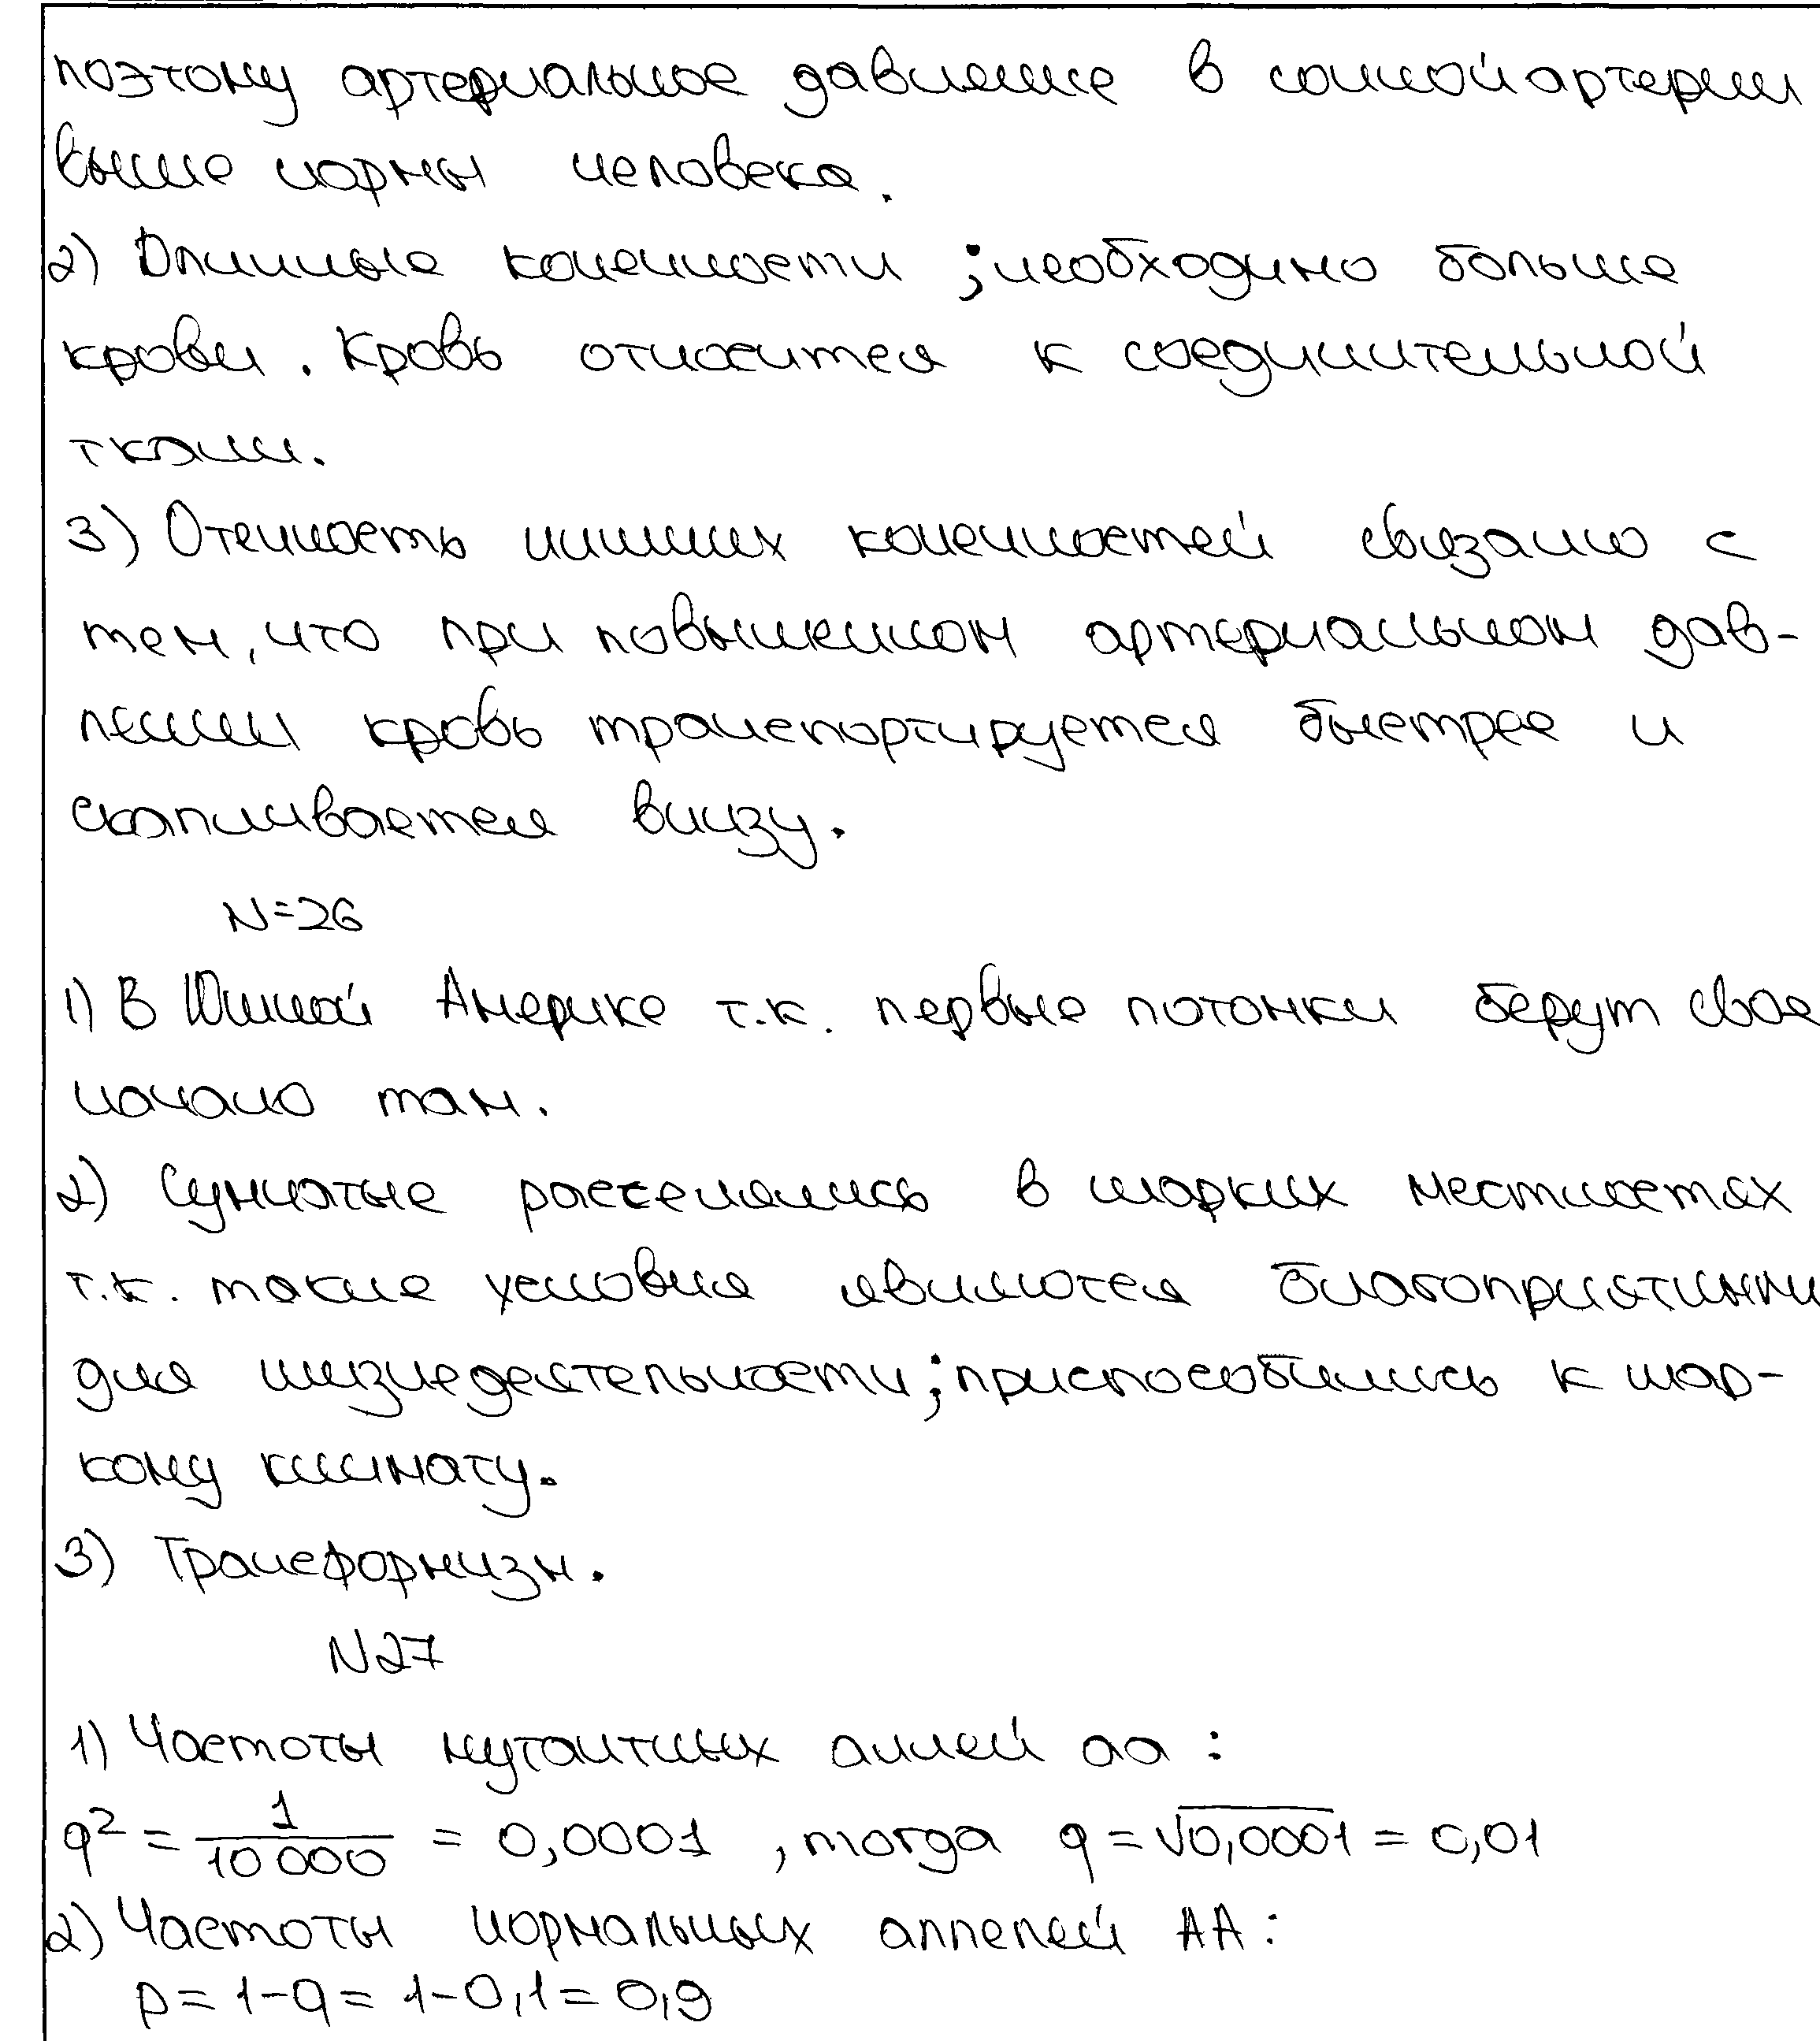 поэтому артериальное давление в сонной артерии
выше нормы человека.
2) Длинные конечности ; необходимо больше
крови. Кровь относится к соединительной
ткани.
3) Отечность нижних конечностей связано с
тем, что при повышенном артериальном дав-
лении кровь транспортируется быстрее и
скапливается внизу.
N=26
1) В Южной Америке т.к. первые потомки берут свое
начало там.
2) Сумчатые расселялись в жарких местностях
т.к. такие условия являются благоприятными
для жизнедеятельности; приспособились к жар-
кому климату.
3) Трансформизм.
N27
1) Частоты мутантных аллей аа :
q² = 1/10 000 = 0,0001 , тогда q = √0,0001 = 0,01
2) Частоты нормальных аллелей АА :
p = 1-q = 1-0,1 = 0,9